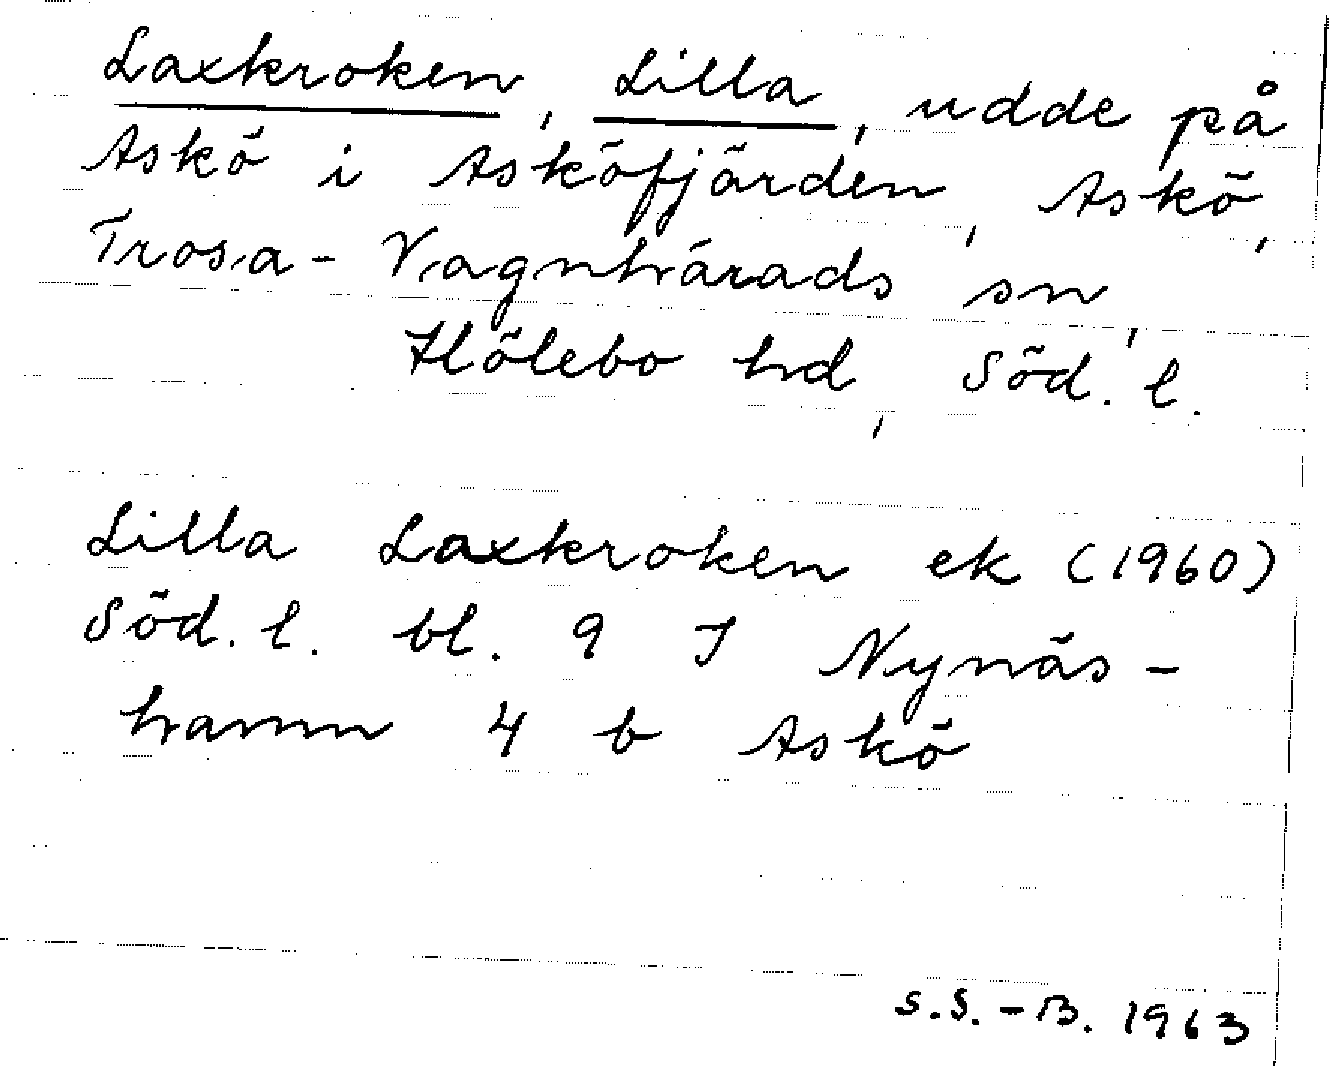 Laxkroken, Lilla, udde på
Askö i Asköfjärden, Askö,
Trosa-Vagnhärads sn,
Hölebo hd, Söd. l.
Lilla Laxkroken ek (1960)
Söd. l. bl. 9 I Nynäs-
hamn 4 b Askö
S.S.-B. 1963